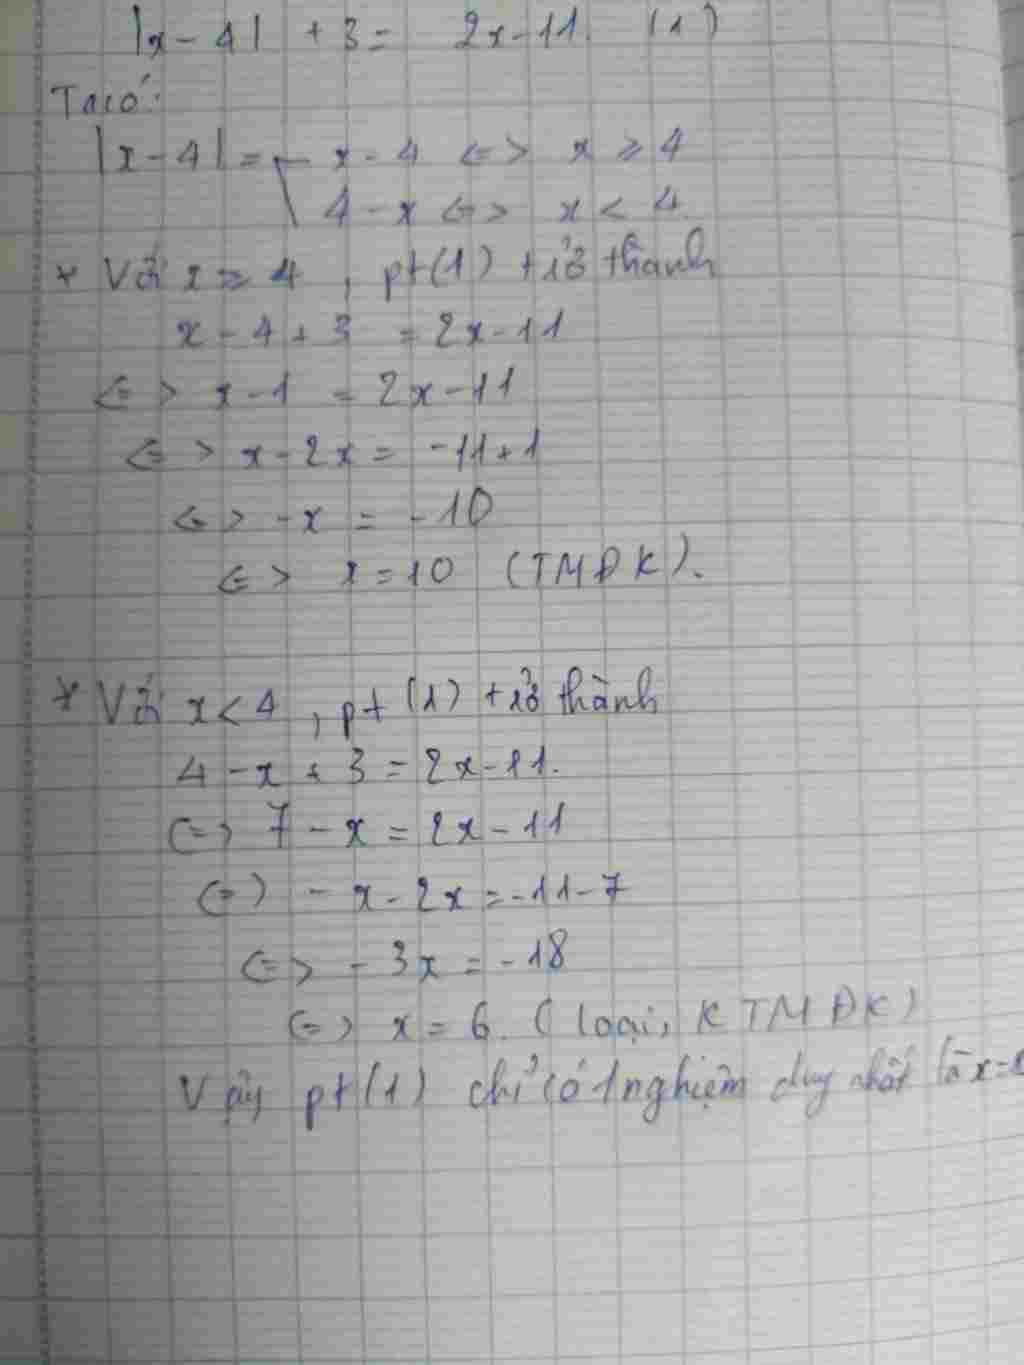 |x-4| + 3 = 2x-11. (1)
Ta có:
|x-4| = x-4 <=> x ≥ 4
4-x <=> x < 4
* Với x ≥ 4, pt(1) trở thành
x-4+3 = 2x-11
<=> x-1 = 2x-11
<=> x-2x = -11+1
<=> -x = -10
<=> x = 10 (TMĐK).
* Với x < 4, pt (1) trở thành
4-x+3 = 2x-11.
<=> 7-x = 2x-11
<=> -x-2x = -11-7
<=> -3x = -18
<=> x = 6. (loại, KTMĐK)
Vậy pt(1) chỉ có 1 nghiệm duy nhất là x=